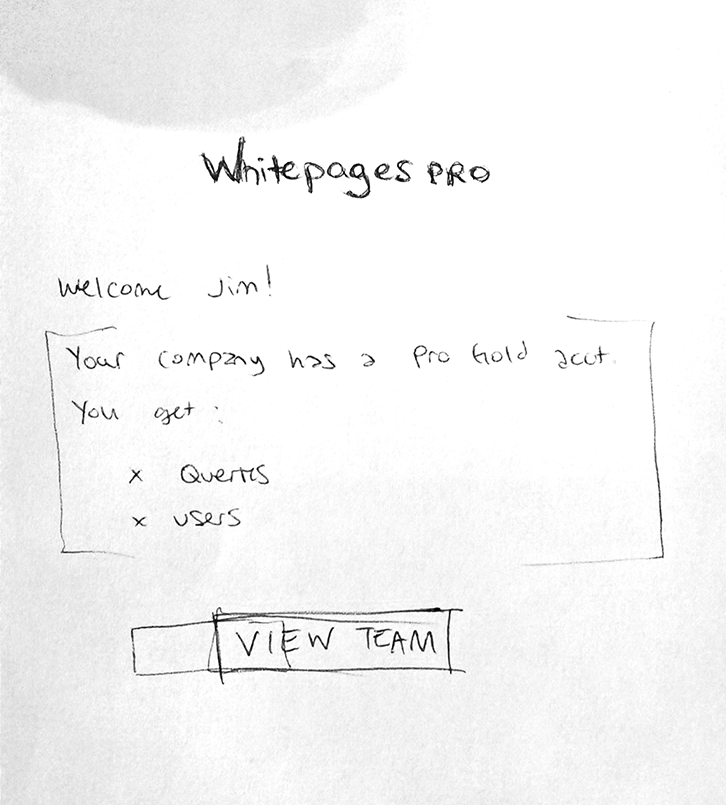 Whitepages PRO
Welcome Jim!
Your company has a Pro Gold acct.
You get :
x Queries
x users
VIEW TEAM